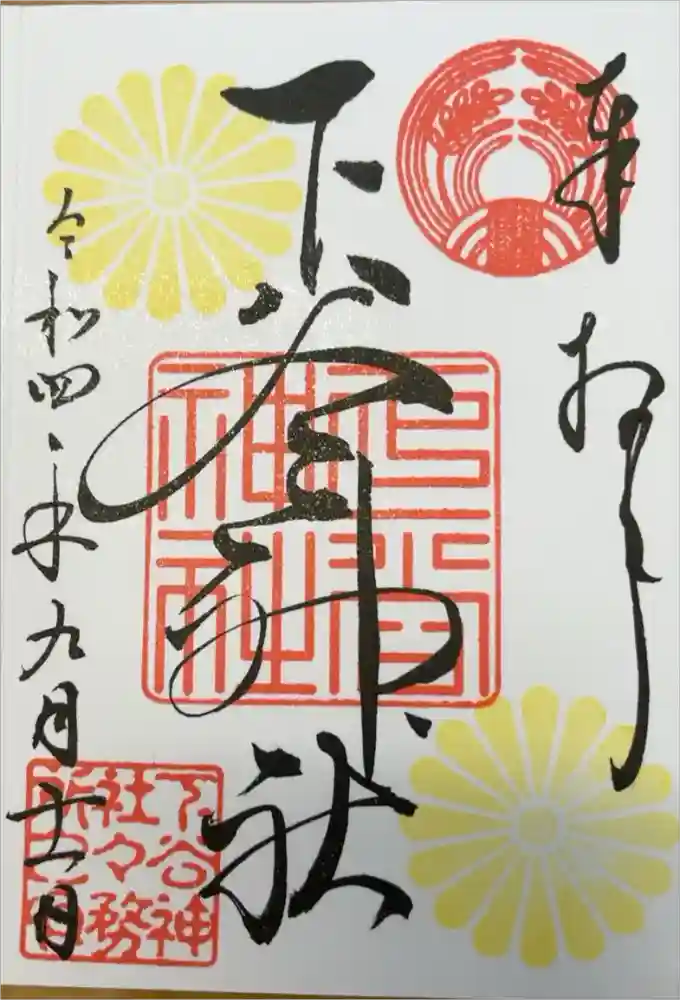 奉拝
下谷神社
下谷神社
令和四年九月十一日
下谷神
社々務
所之